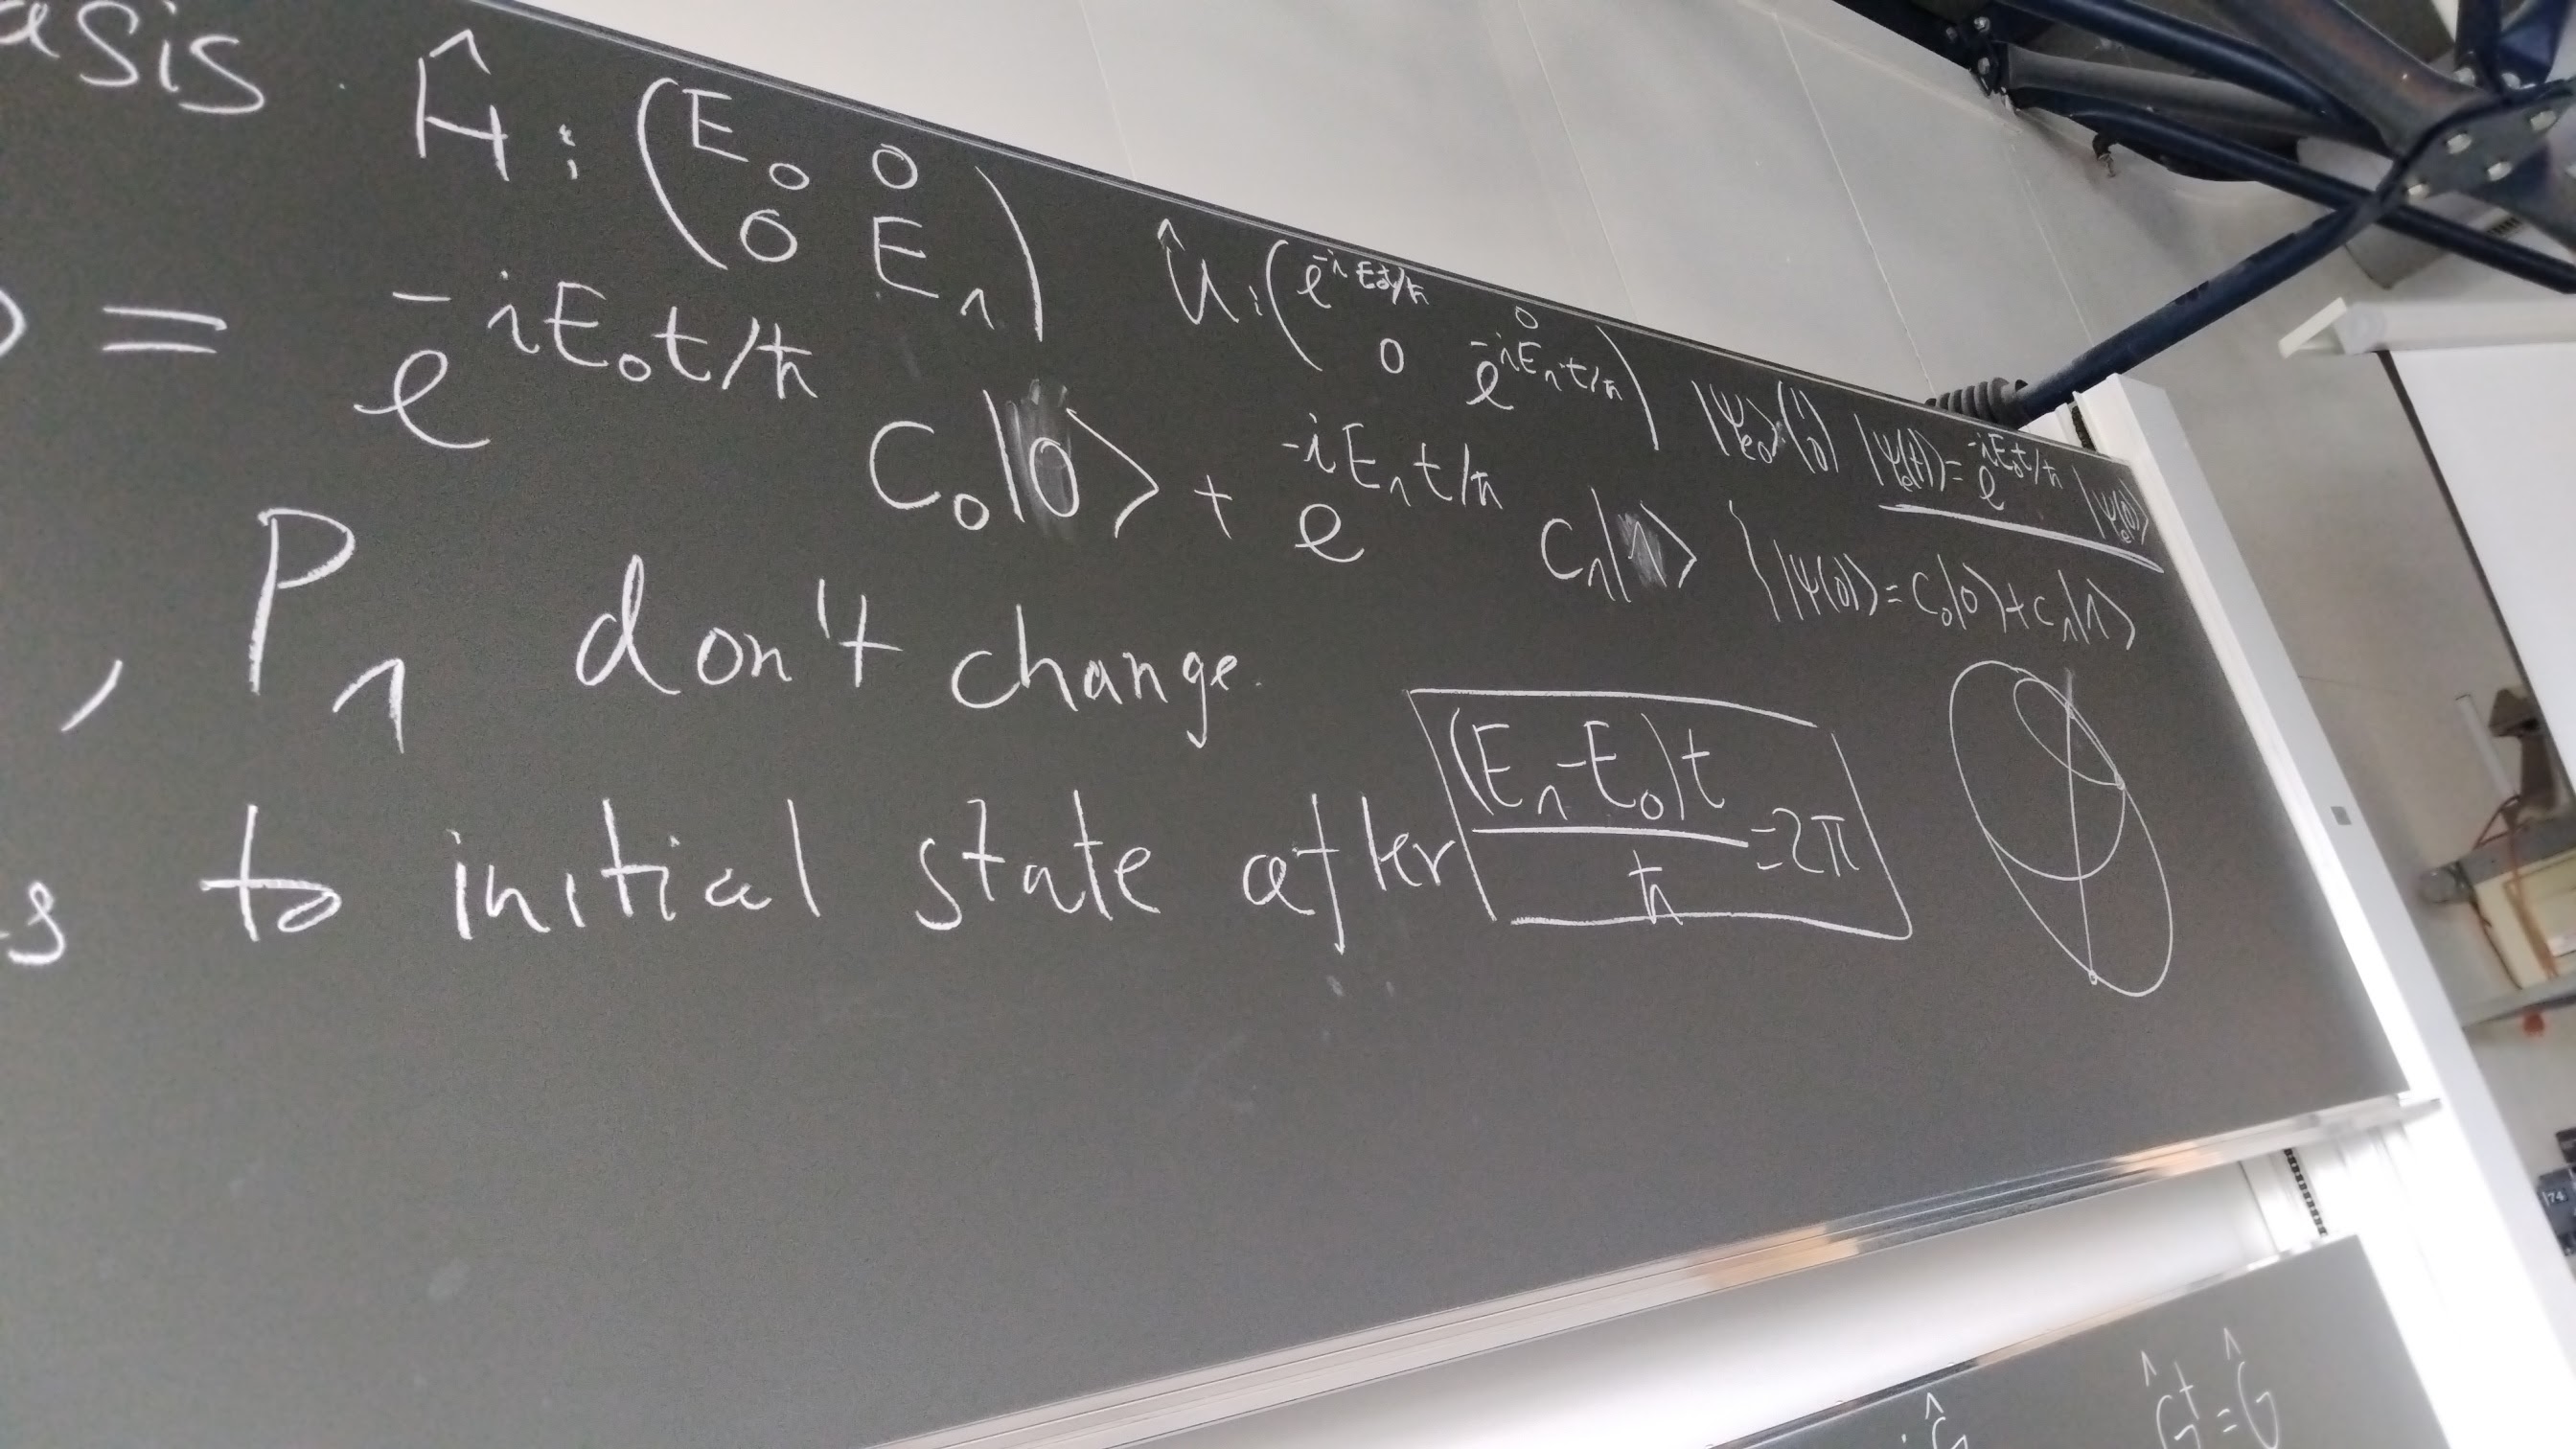 asis. Ĥ: (E₀ 0
0 E₁) Û: (e^{-iE₀t/ħ} 0
0 e^{-iE₁t/ħ}) |Ψe₀⟩(1 0) |Ψe(t)⟩=e^{-iE₀t/ħ}|Ψe(0)⟩
⟩ = e^{-iE₀t/ħ} C₀|0⟩ + e^{-iE₁t/ħ} C₁|1⟩ |Ψ(0)⟩=C₀|0⟩+C₁|1⟩
, P₁ don't change.
s to initial state after (E₁-E₀)t/ħ=2π
Ĝ Ĝ†=Ĝ
74